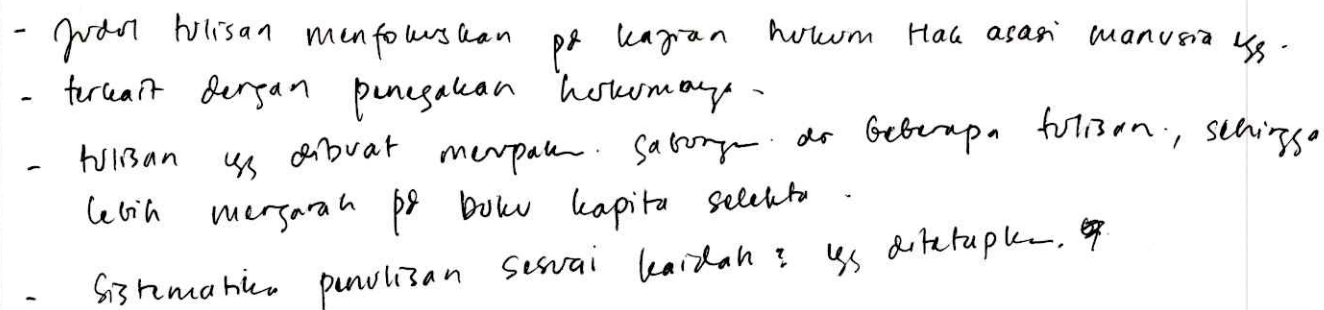 - Judul tulisan menfokuskan pd kajian hukum Hak asasi manusia yg.
- terkait dengan penegakan hukumnya.
- tulisan yg dibuat merupakn. gabungn. dr beberapa tulisan., sehingga
lebih mengarah pd buku kapita selekta.
- Sistematika penulisan sesuai kaidah2 yg ditetapkn.